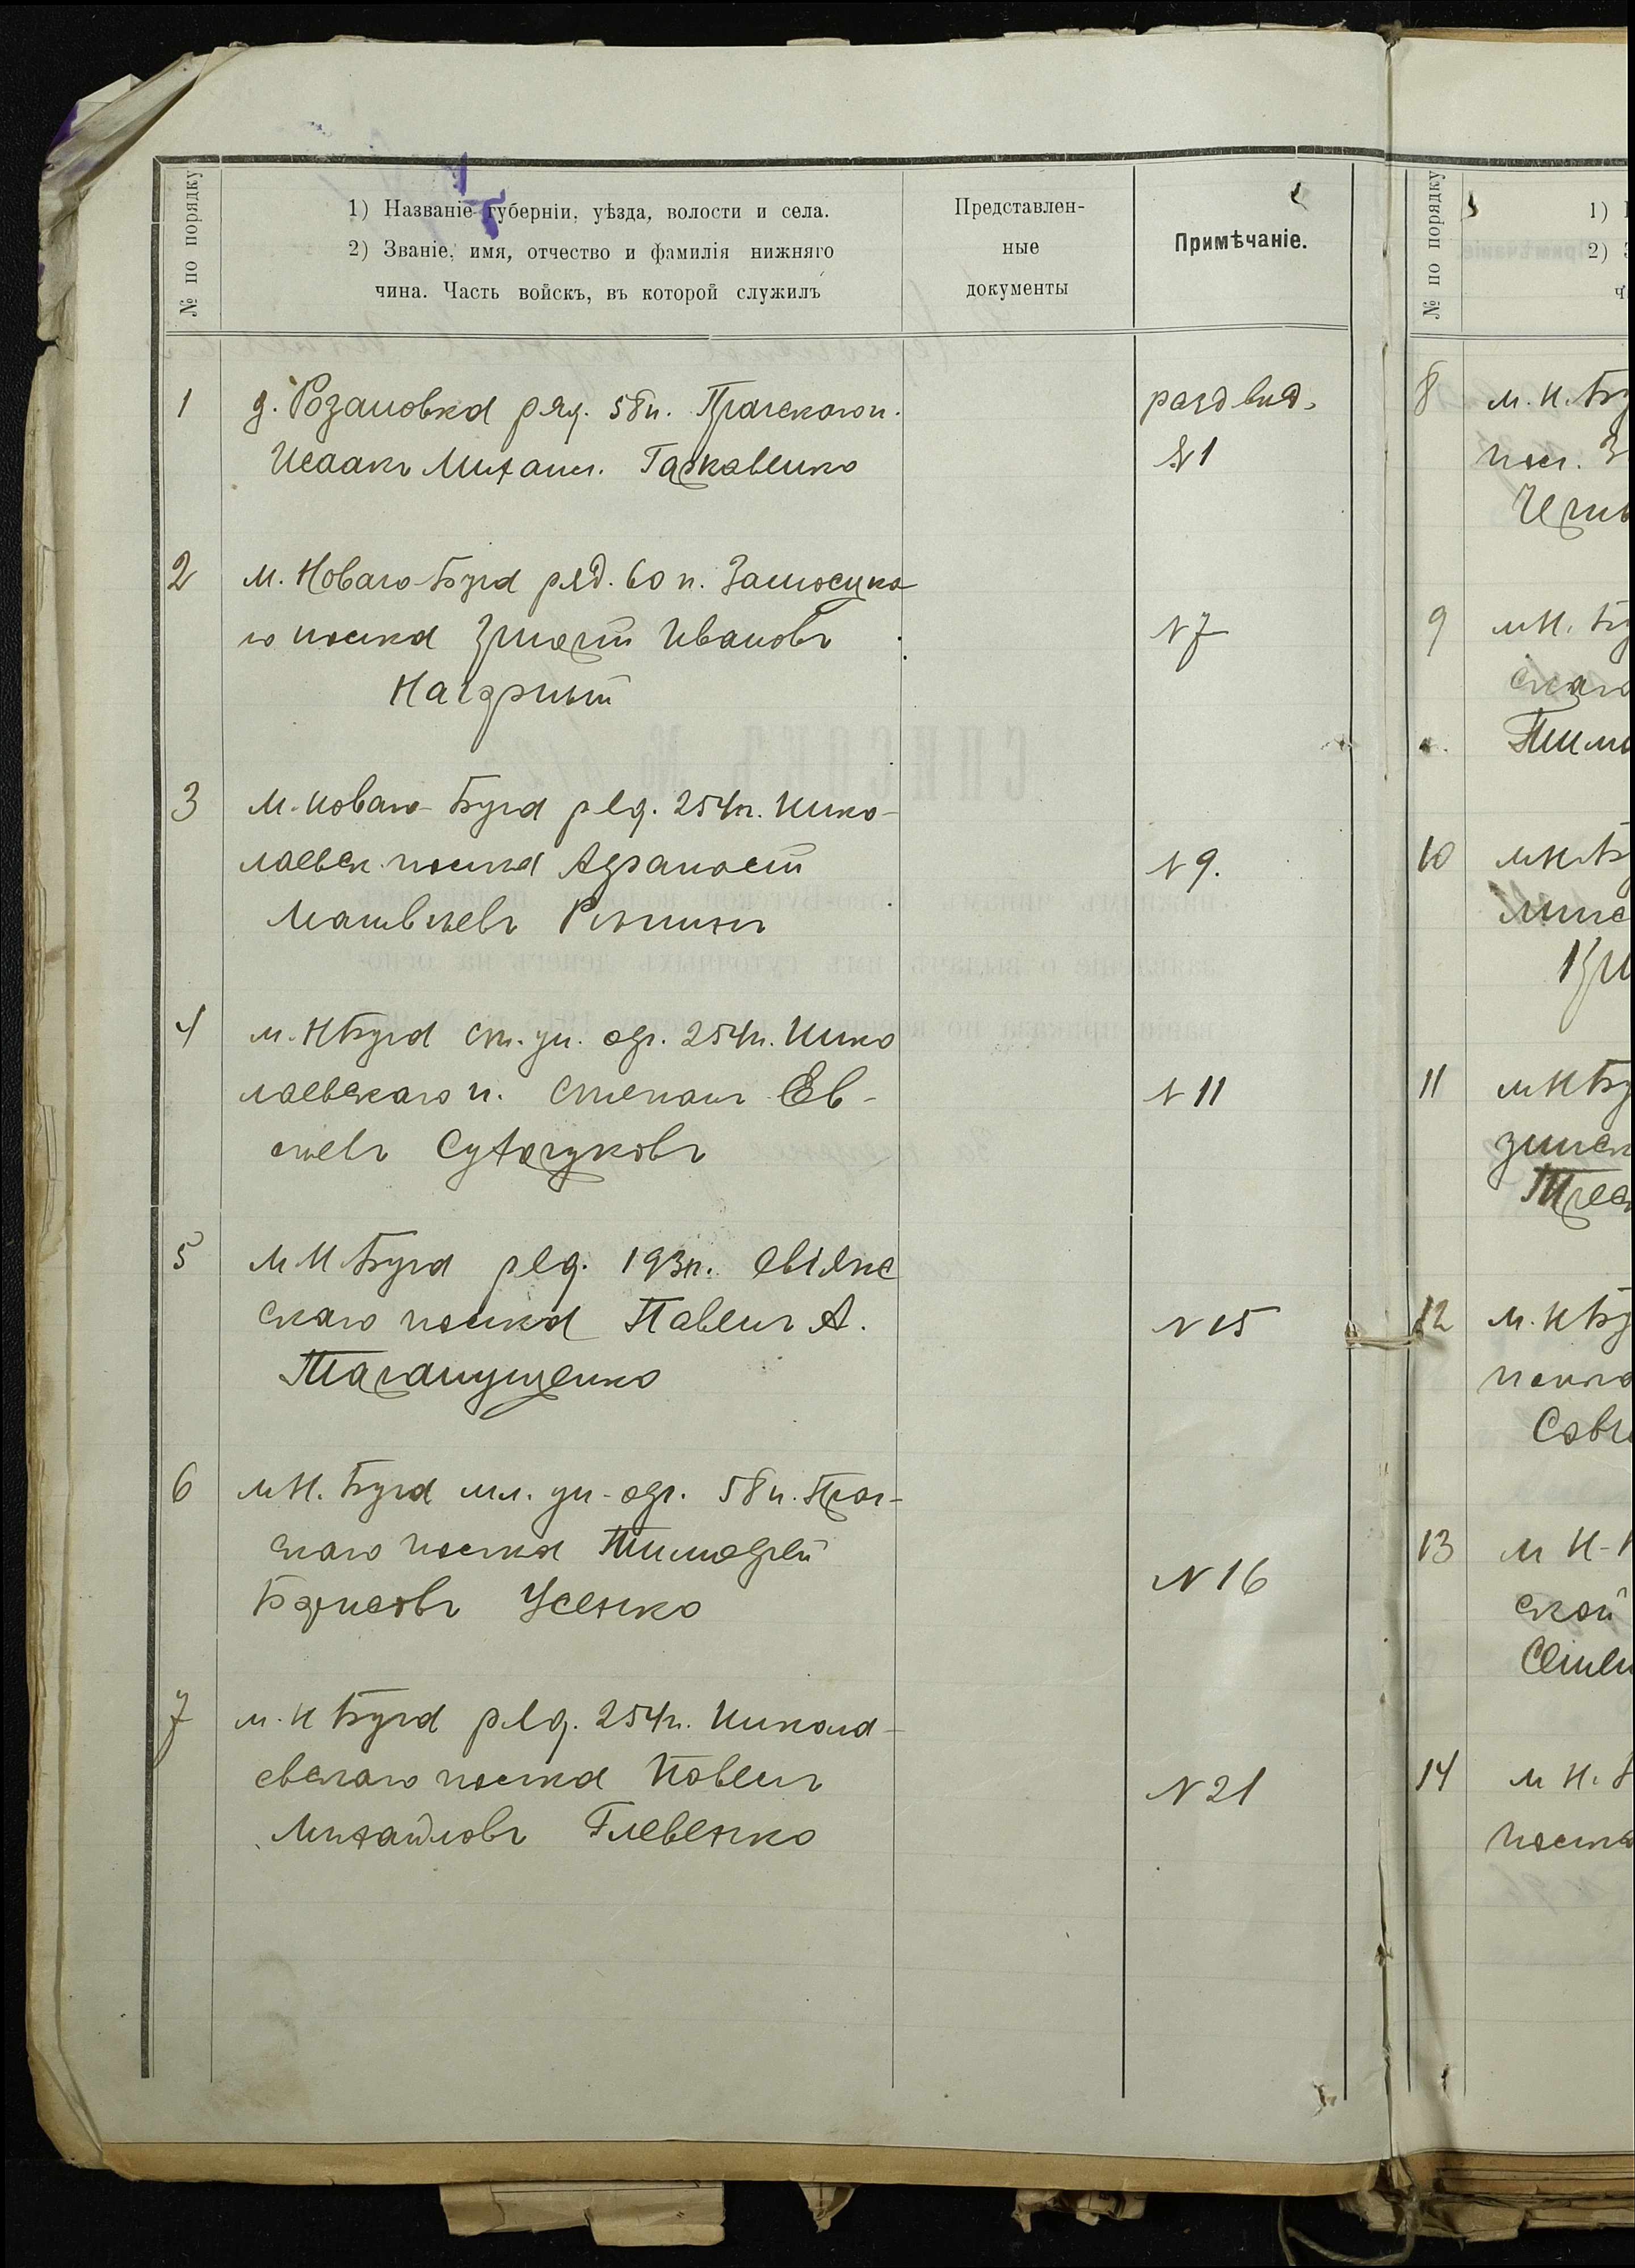 № по порядку
1) Названіе губерніи, уѣзда, волости и села.
2) Званіе, имя, отчество и фамилія нижняго
чина. Часть войскъ, въ которой служилъ
Представлен-
ные
документы
Примѣчаніе.
1
д. Розановка ряд. 58 п. Прагскаго п.
Исаакъ Михаил. Гаркавенко
разд. вѣд.
№ 1
2
м. Новаго-Буга ряд. 60 п. Замосцка
го полка Иванов
Нагорный
№ 7
3
м. Новаго-Буга ряд. 254 п. Нико-
лаевск. полка
Матвѣевъ
№ 9.
4
м. Н Буга ст. ун. оф. 254 п. Нико
лаевскаго п. Степанъ Ев-
сѣевъ
№ 11
5
м Н Буга ряд. 193 п. Свіяж
скаго полка Павелъ А.
№ 15
6
м Н. Буга мл. ун-оф. 58 п. Праг-
скаго полка Тимофей
Борисовъ Усенко
№ 16
7
м. Н Буга ряд. 254 п. Никола-
евскаго полка Павелъ
Михайловъ Глевенко
№ 21
№ по порядку
1)
2)
8
м. Н. Бу
9
м Н. Бу
10
11
м Н Бу
12
м. Н Бу
13
м Н-
ской
14
м Н.
полка